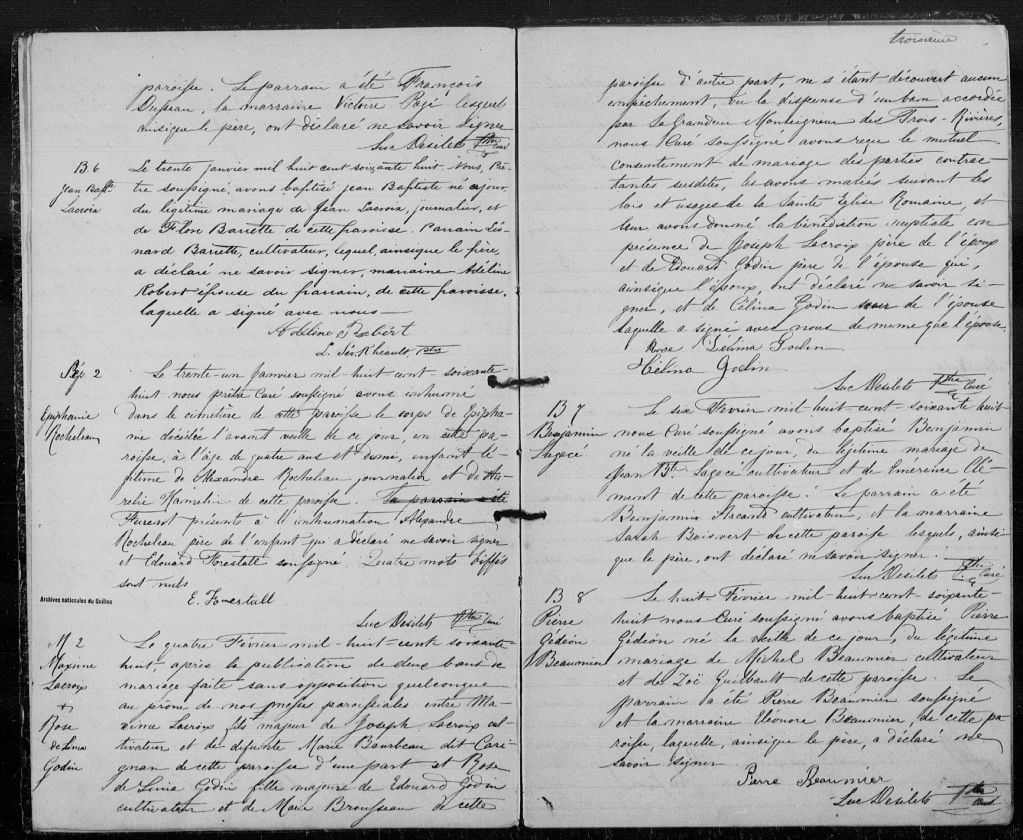 paroisse. Le parrain a été François
Dusseau, la marraine Victoire Pagé lesquels
ainsique le père, ont déclaré ne savoir signer
Luc Desilets Ptre Curé
B 6
Jean Bapte
Lacroix
Le trente janvier mil huit cent soixante huit. Nous, Prê-
tre soussigné, avons baptisé jean Baptiste né ce jour,
du légitime mariage de Jean Lacroix, journalier, et
de Flore Barrette de cette paroisse. Parrain Léo-
nard Barrette, cultivateur, lequel, ainsique le père,
a déclaré ne savoir signer, marraine Adéline
Robert épouse du parrain, de cette paroisse,
laquelle a signé avec nous
Adéline Robert
L. Sév. Rheault, Ptre
Sép. 2
Epiphanie
Rocheleau
Le trente-un Janvier mil-huit cent soixante-
huit nous prêtre Curé soussigné avons inhumé
dans le cimetière de cette paroisse le corps de Epipha-
nie décédée l'avant veille de ce jour, en cette pa-
roisse, à l'âge de quatre ans et demi, enfant lé-
gitime de Alexandre Rocheleau journalier et de Au-
relie Hamelin de cette paroisse. La parrain a été
Furent présents à l'inhumation Alexandre
Rocheleau père de l'enfant qui a déclaré ne savoir signer
et Edouard Forestall soussigné. Quatre mots biffés
sont nuls
E. Forestall
Luc Desilets Ptre Curé
Archives nationales du Québec
M 2
Maxime
Lacroix
+
Rose
de Lima
Godin
Le quatre Février mil-huit-cent soixante
huit après la publication de deux bans de
mariage faite sans opposition quelconque
au prône de nos messes paroissiales entre Ma-
xime Lacroix fils majeur de Joseph Lacroix cul-
tivateur et de defunte Marie Bourbeau dit Cari-
gnan de cette paroisse d'une part et Rose
de Lima Godin fille majeure de Edouard Godin
cultivateur et de Marie Brousseau de cette
troisième
paroisse d'autre part, ne s'étant découvert aucun
empêchement, vu la dispense d'un ban accordée
par Sa Grandeur Monseigneur des Trois-Rivières,
nous Curé soussigné avons reçu le mutuel
consentement de mariage des parties contrac-
tantes susdites, les avons mariés suivant les
lois et usages de la Sainte Eglise Romaine, et
leur avons donné la bénédiction nuptiale en
présence de Joseph Lacroix père de l'époux
et de Edouard Godin père de l'épouse qui,
ainsique l'époux, ont déclaré ne savoir si-
gner, et de Célina Godin sœur de l'épouse
laquelle a signé avec nous de même que l'épouse.
Rose Délima Godin
Célina Godin
Luc Desilets Ptre Curé
B 7
Benjamin
Lagacé
Le six Février mil huit-cent-soixante huit
nous Curé soussigné avons baptisé Benjamin
né la veille de ce jour, du légitime mariage de
Jean Bte Lagacé cultivateur et de Emerence Clé-
ment de cette paroisse. Le parrain a été
Benjamin Arcand cultivateur, et la marraine
Sarah Boisvert de cette paroisse lesquels, ainsi-
que le père, ont déclaré ne savoir signer.
Luc Desilets Ptre Curé
B 8
Pierre
Gédéon
Beaumier
Le huit Février mil-huit-cent soixante-
huit nous Curé soussigné avons baptisé Pierre
Gédéon né la veille de ce jour, du légitime
mariage de Michel Beaumier cultivateur
et de Zoé Guilbault de cette paroisse. Le
parrain a été Pierre Beaumier soussigné
et la marraine Eleonore Beaumier, de cette pa-
roisse, laquelle, ainsique le père, a déclaré ne
savoir signer
Pierre Beaumier
Luc Desilets Ptre Curé